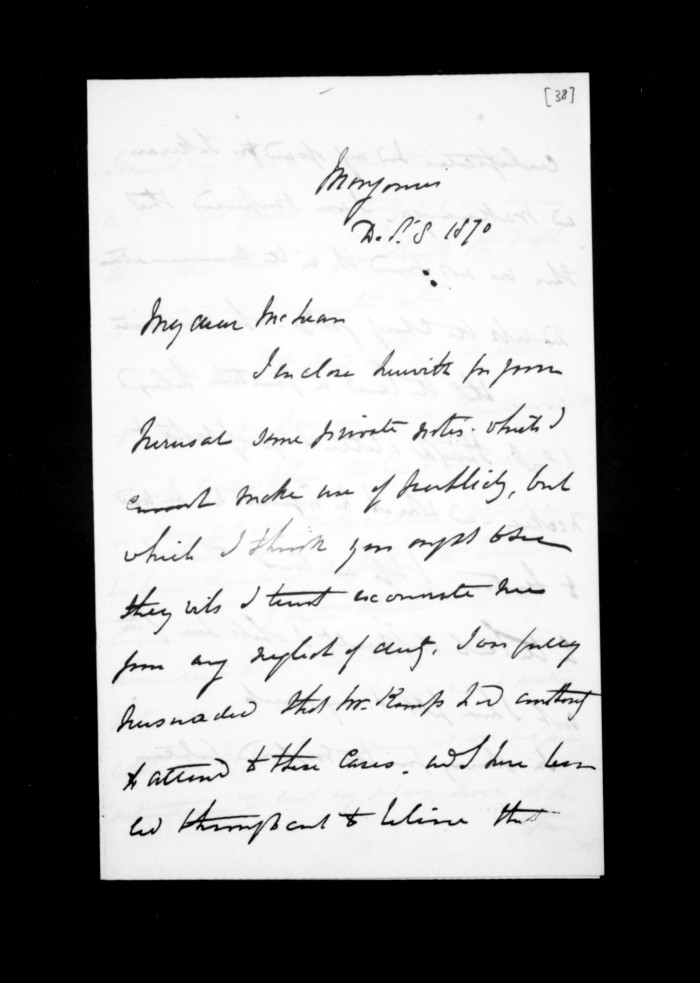 [38]
Wanganui
Dec. 8 1870
My dear McLean
I enclose herewith for your
perusal some private notes which I
cannot make use of publicly, but
which I think you ought to see
they will I trust exonerate me
from any neglect of duty. I am fully
persuaded that Mr. Kemp had authority
to attend to these cases. and I have been
led throughout to believe that